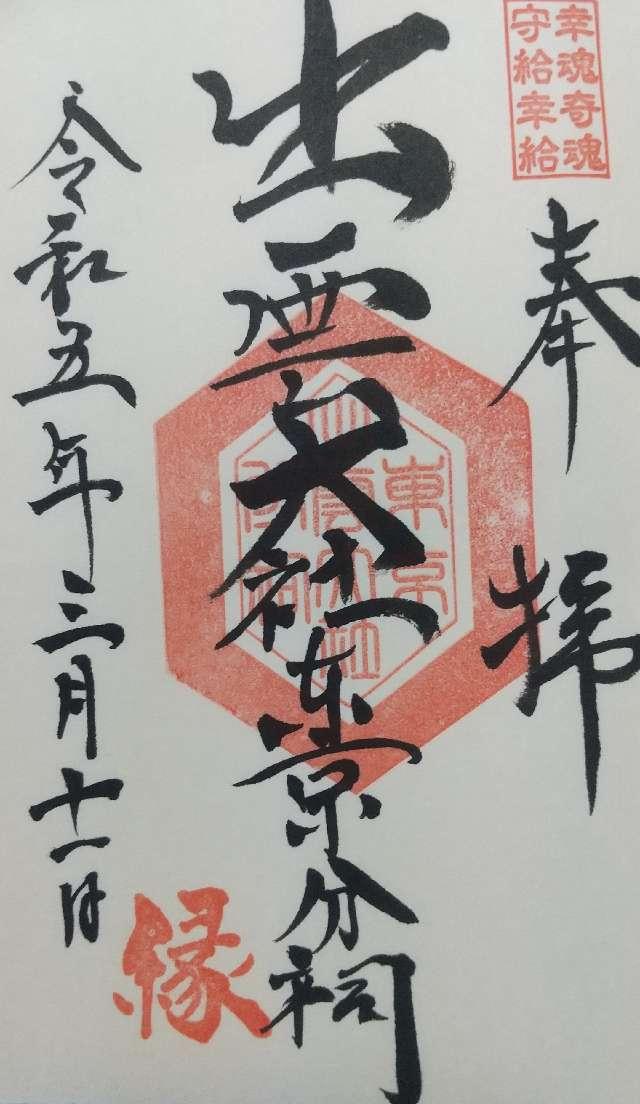 幸魂奇魂
守給幸給
奉拝
出雲大社東京分祠
東京
出雲大社
分祠
令和五年三月十一日
縁